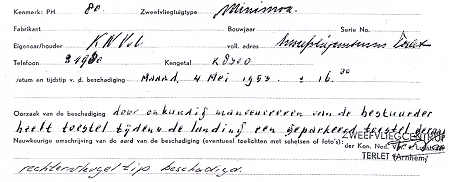 Kenmerk: PH 80 Zweefvliegtuigtype Minimoa.
Fabrikant Bouwjaar Serie No.
Eigenaar/houder KNVvL voll. adres Zweefvliegcentrum Terlet
Telefoon Kengetal K 8300
Datum en tijdstip v. d. beschadiging Maand, 4 Mei 1953 ± 16.30
Oorzaak van de beschadiging door onkundig manoeuvreren van de bestuurder
heeft toestel tijdens de landing een geparkeerd toestel
Nauwkeurige omschrijving van de aard van de beschadiging (eventueel toelichten met schetsen of foto's)
ZWEEFVLIEGCENTRUM
der Kon. Ned.
TERLET (Arnhem)
rechtervleugel tip beschadigd.